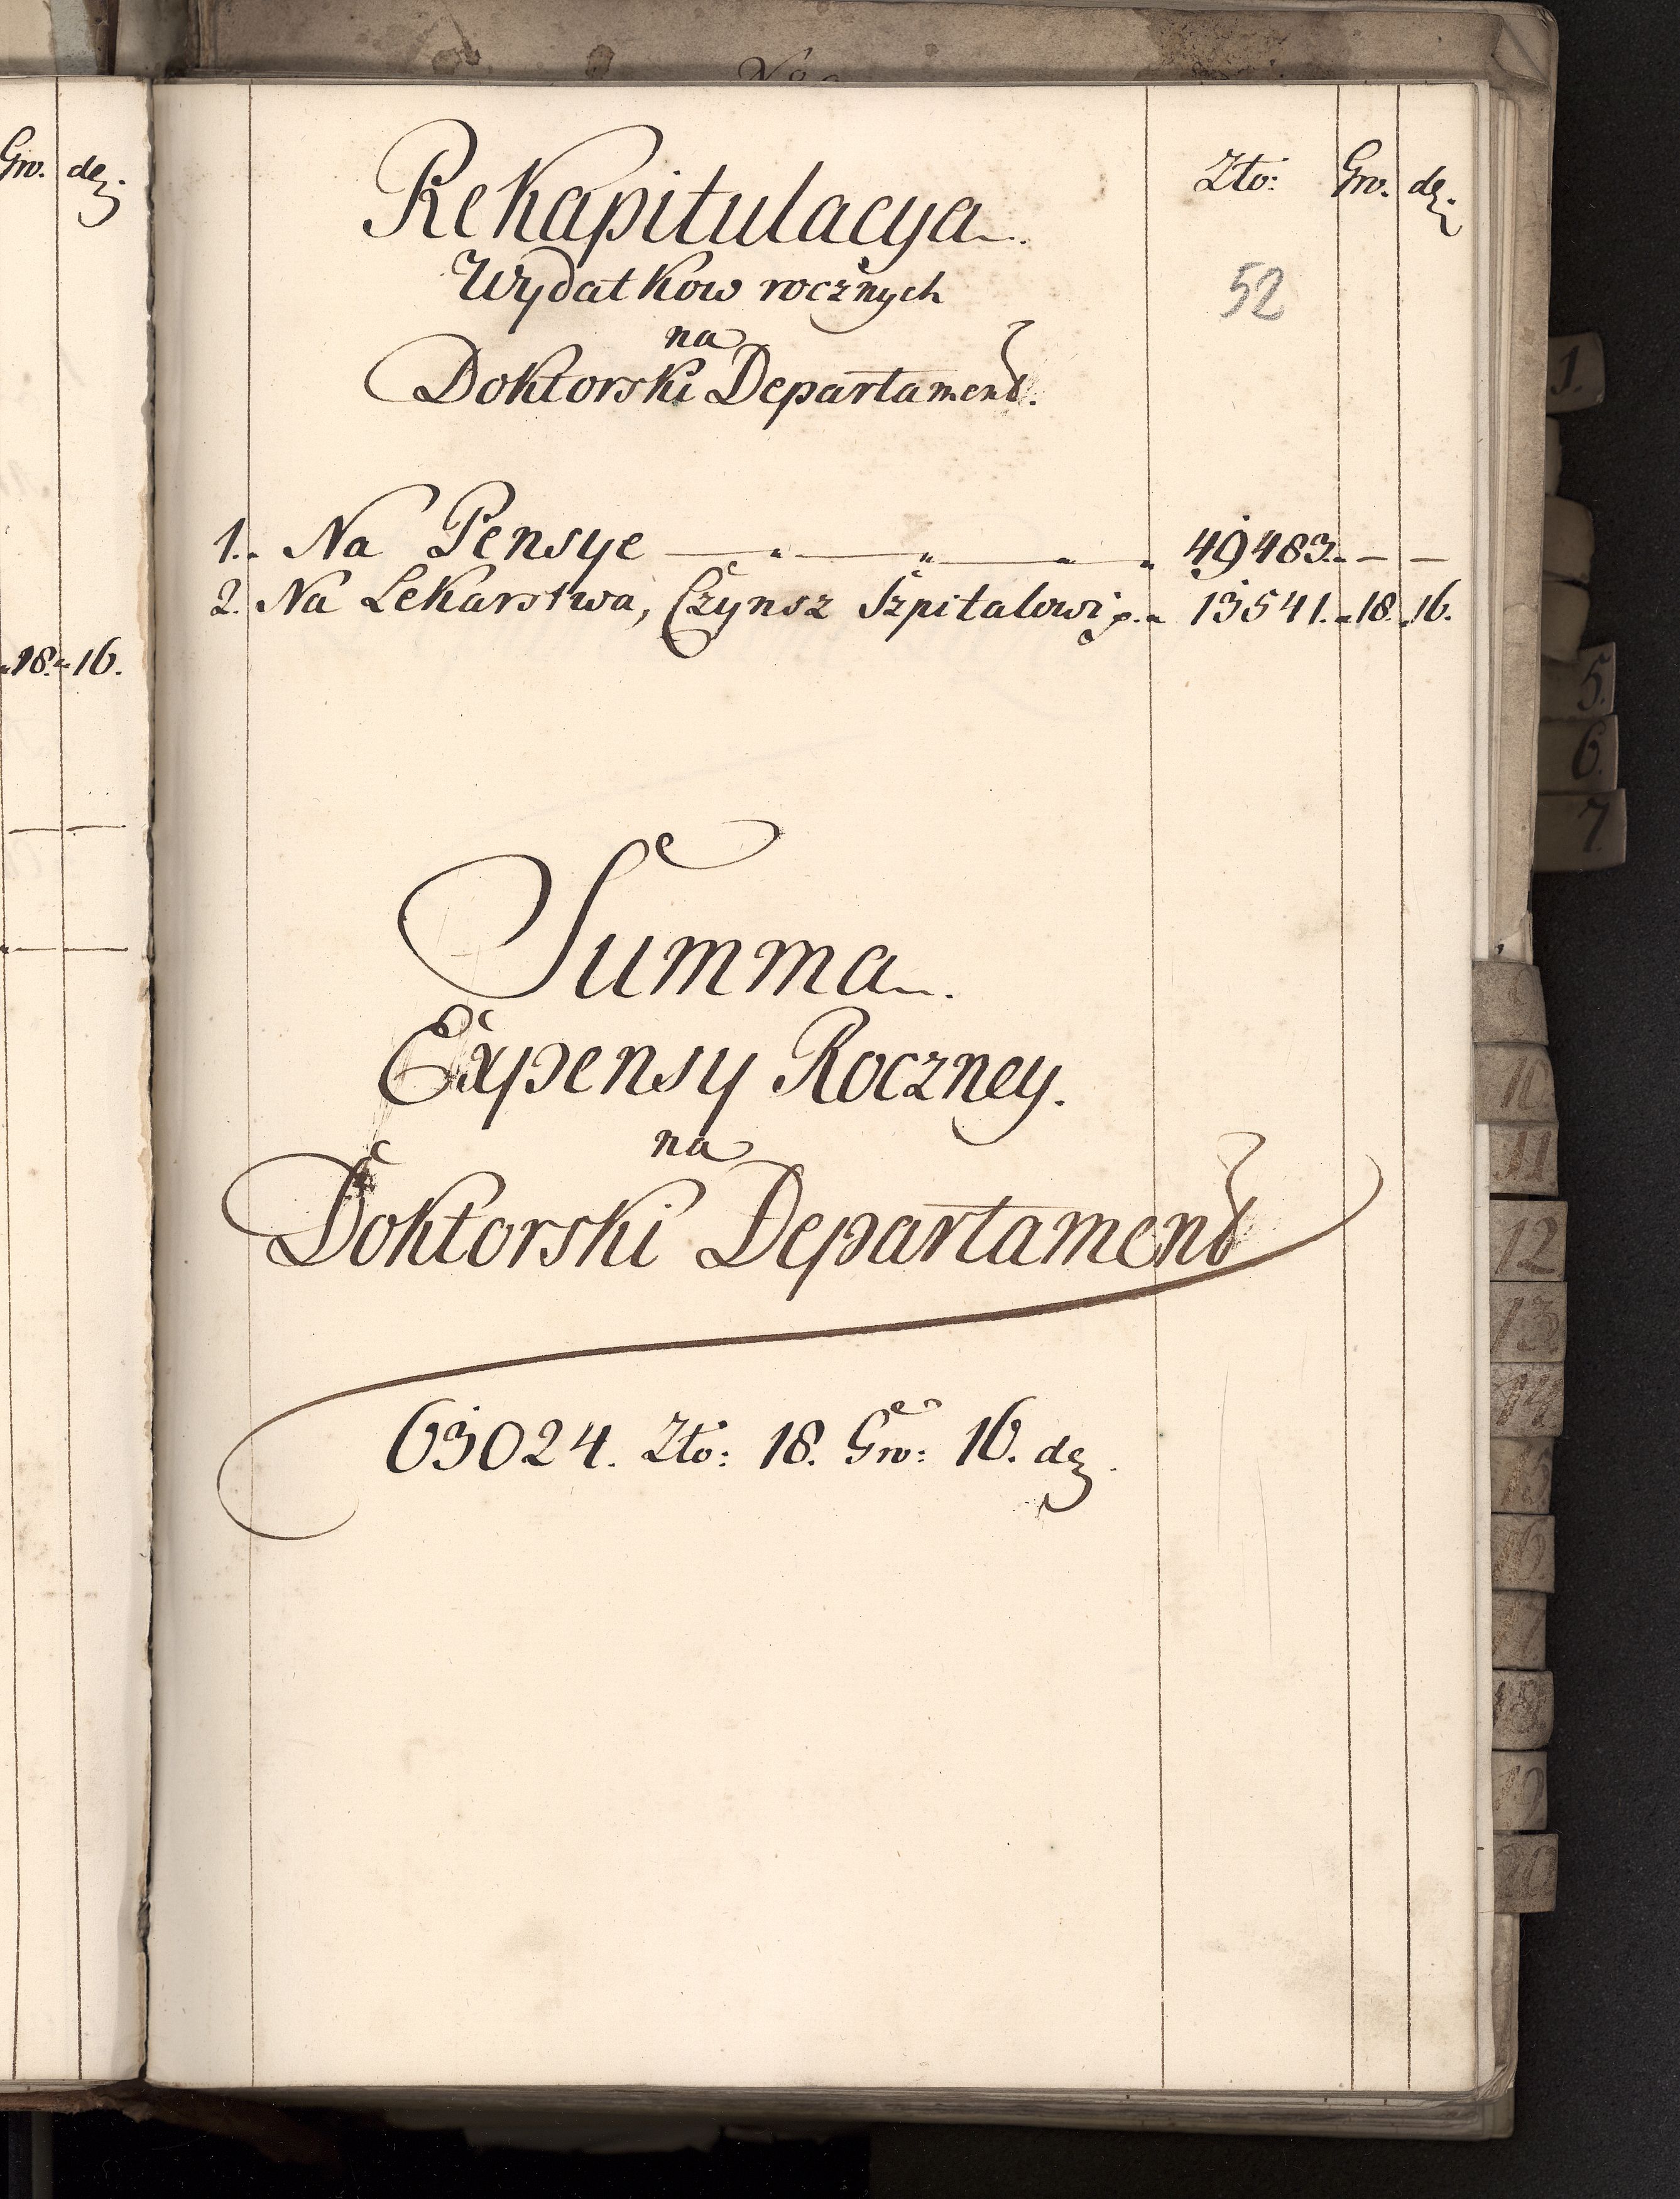 Gro. dez.
.18.-16.
Rekapitulacya.
Wydatkow rocznych
na
Doktorski Departament.
Zło: Gro. dez.
52
1. Na Pensye — 49483. — —
2. Na Lekarstwa, Czynsz Szpitalowi p. 13541. 18. 16.
Summa.
Expensy Roczney.
na
Doktorski Departament
63024. Zło: 18. Gro: 16. dez.
1.
5.
6.
7.
10
11
12
13
14
15
16
17
18
19
20